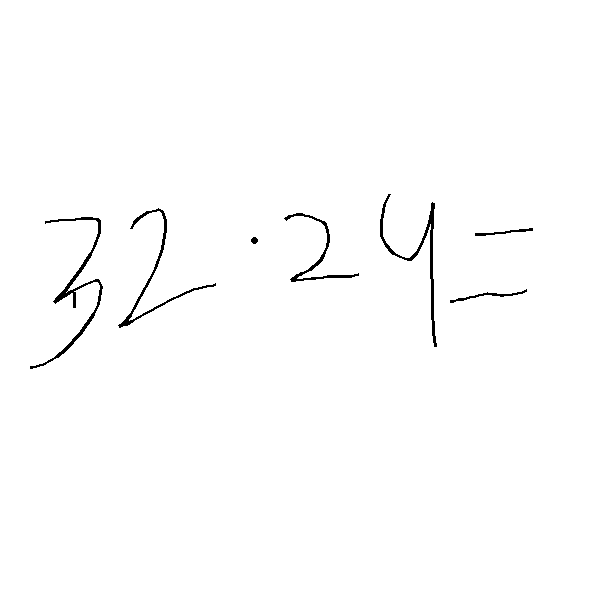 32·24=